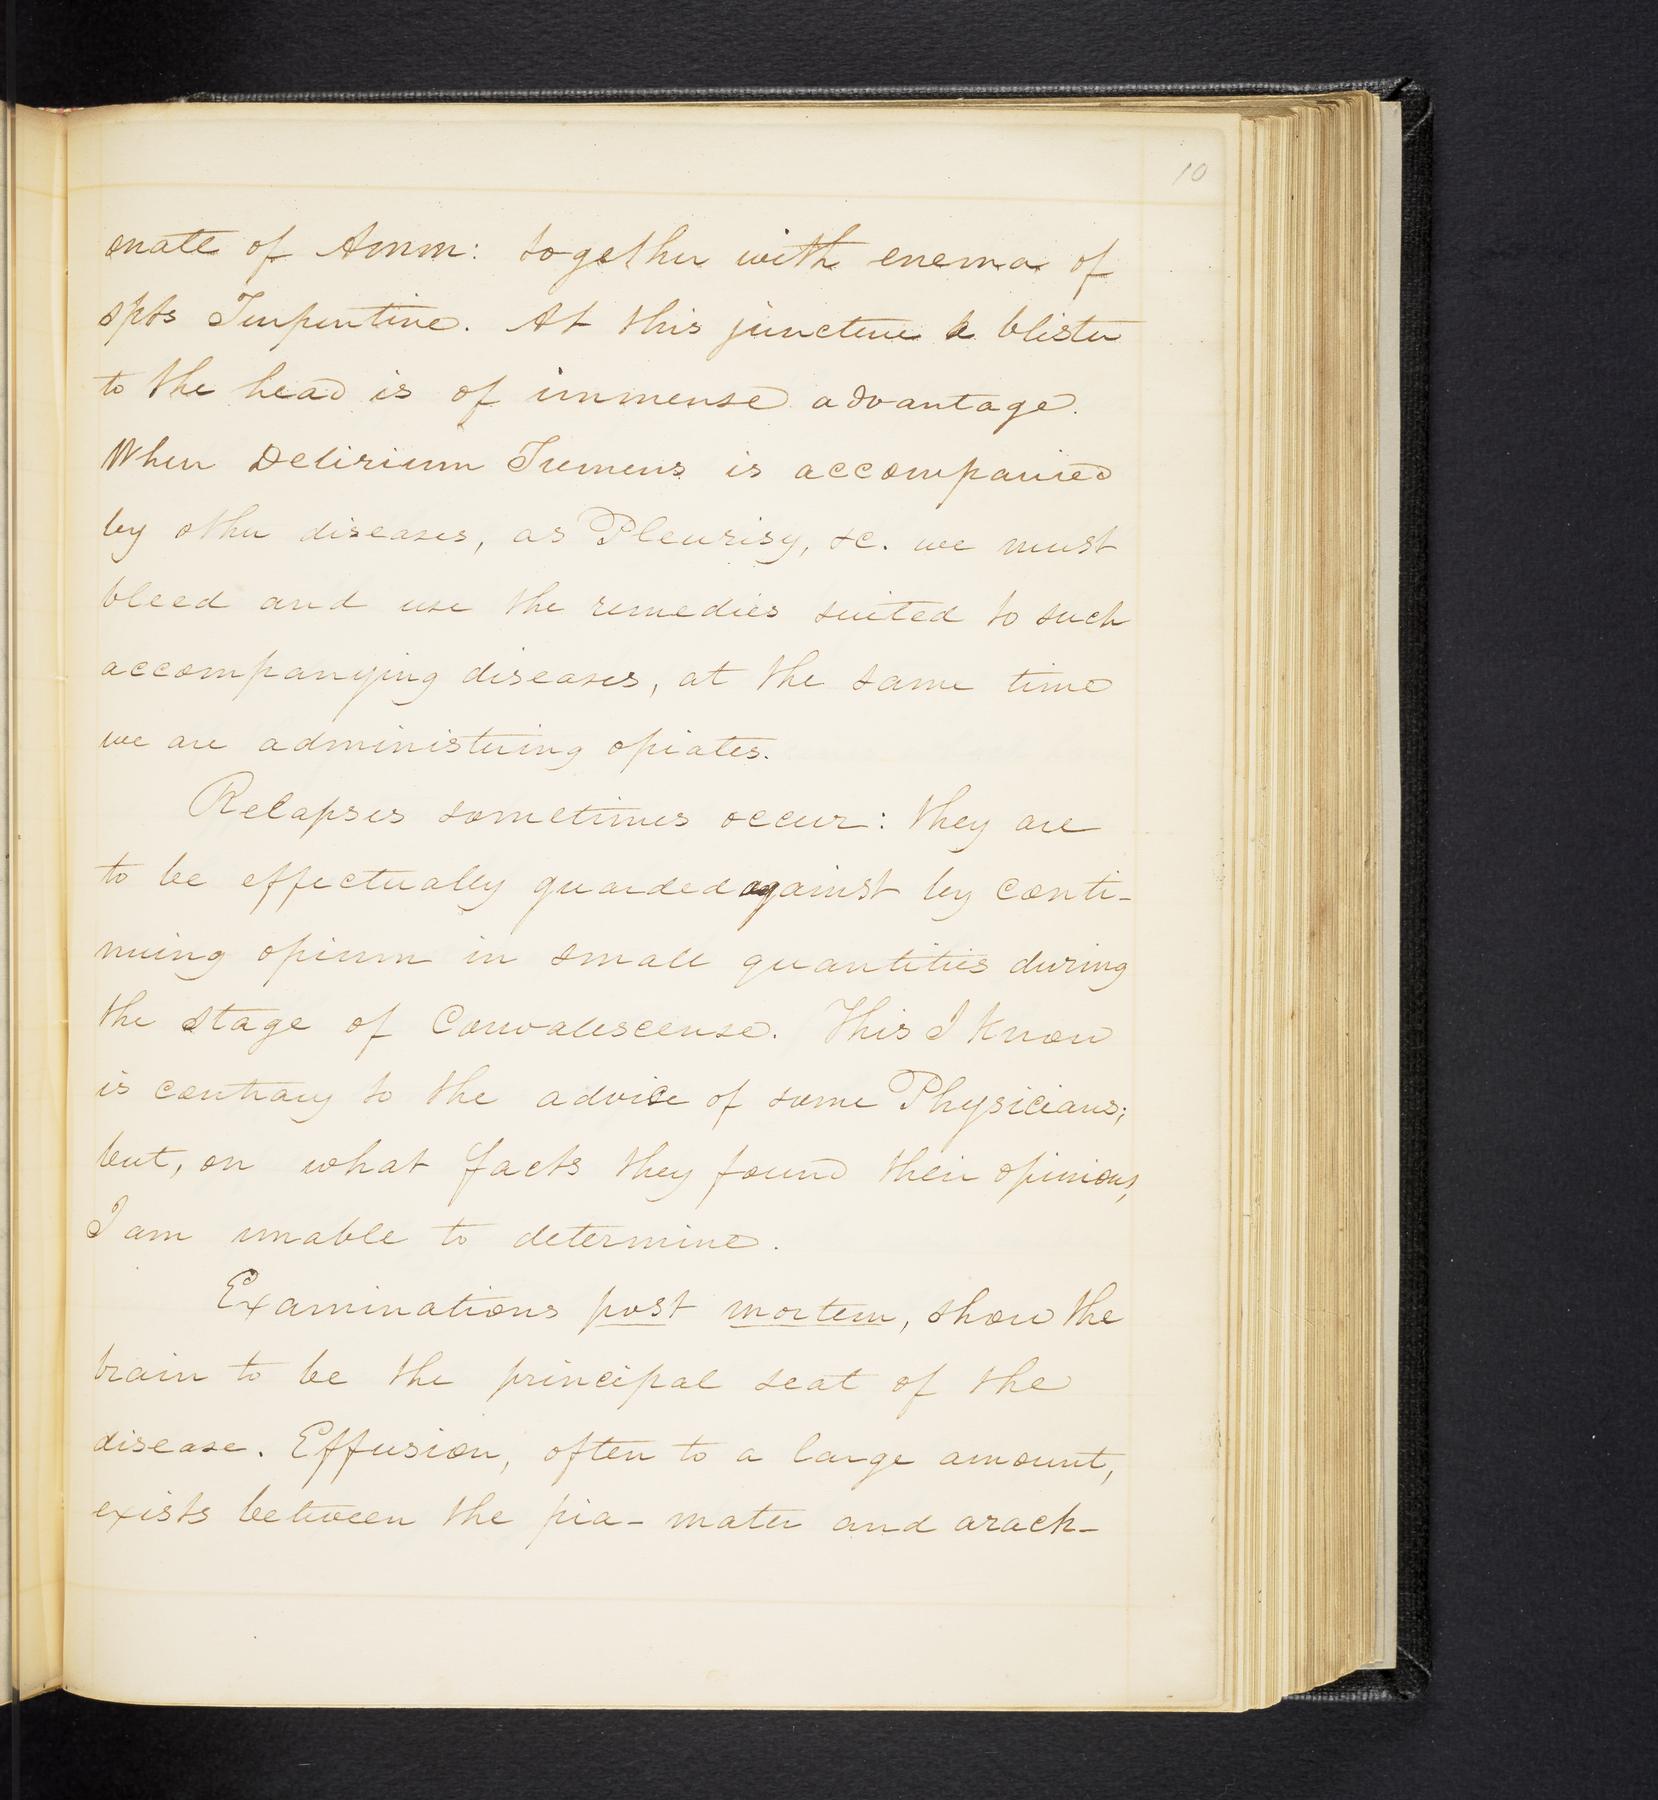 10
onate of Amm: together with enema of
spts Turpentine. At this juncture a blister
to the head is of immense advantage.
When Delirium Tremens is accompanied
by other diseases, as Pleurisy, &c. we must
bleed and use the remedies suited to such
accompanying diseases, at the same time
we are administering opiates.
Relapses sometimes occur: they are
to be effectually guarded against by conti-
nuing opium in small quantities during
the stage of Convalescense. This I know
is contrary to the advice of some Physicians;
but, on what facts they found their opinions,
I am unable to determine.
Examinations post mortem, show the
brain to be the principal seat of the
disease. Effusion, often to a large amount,
exists between the pia-mater and arach-